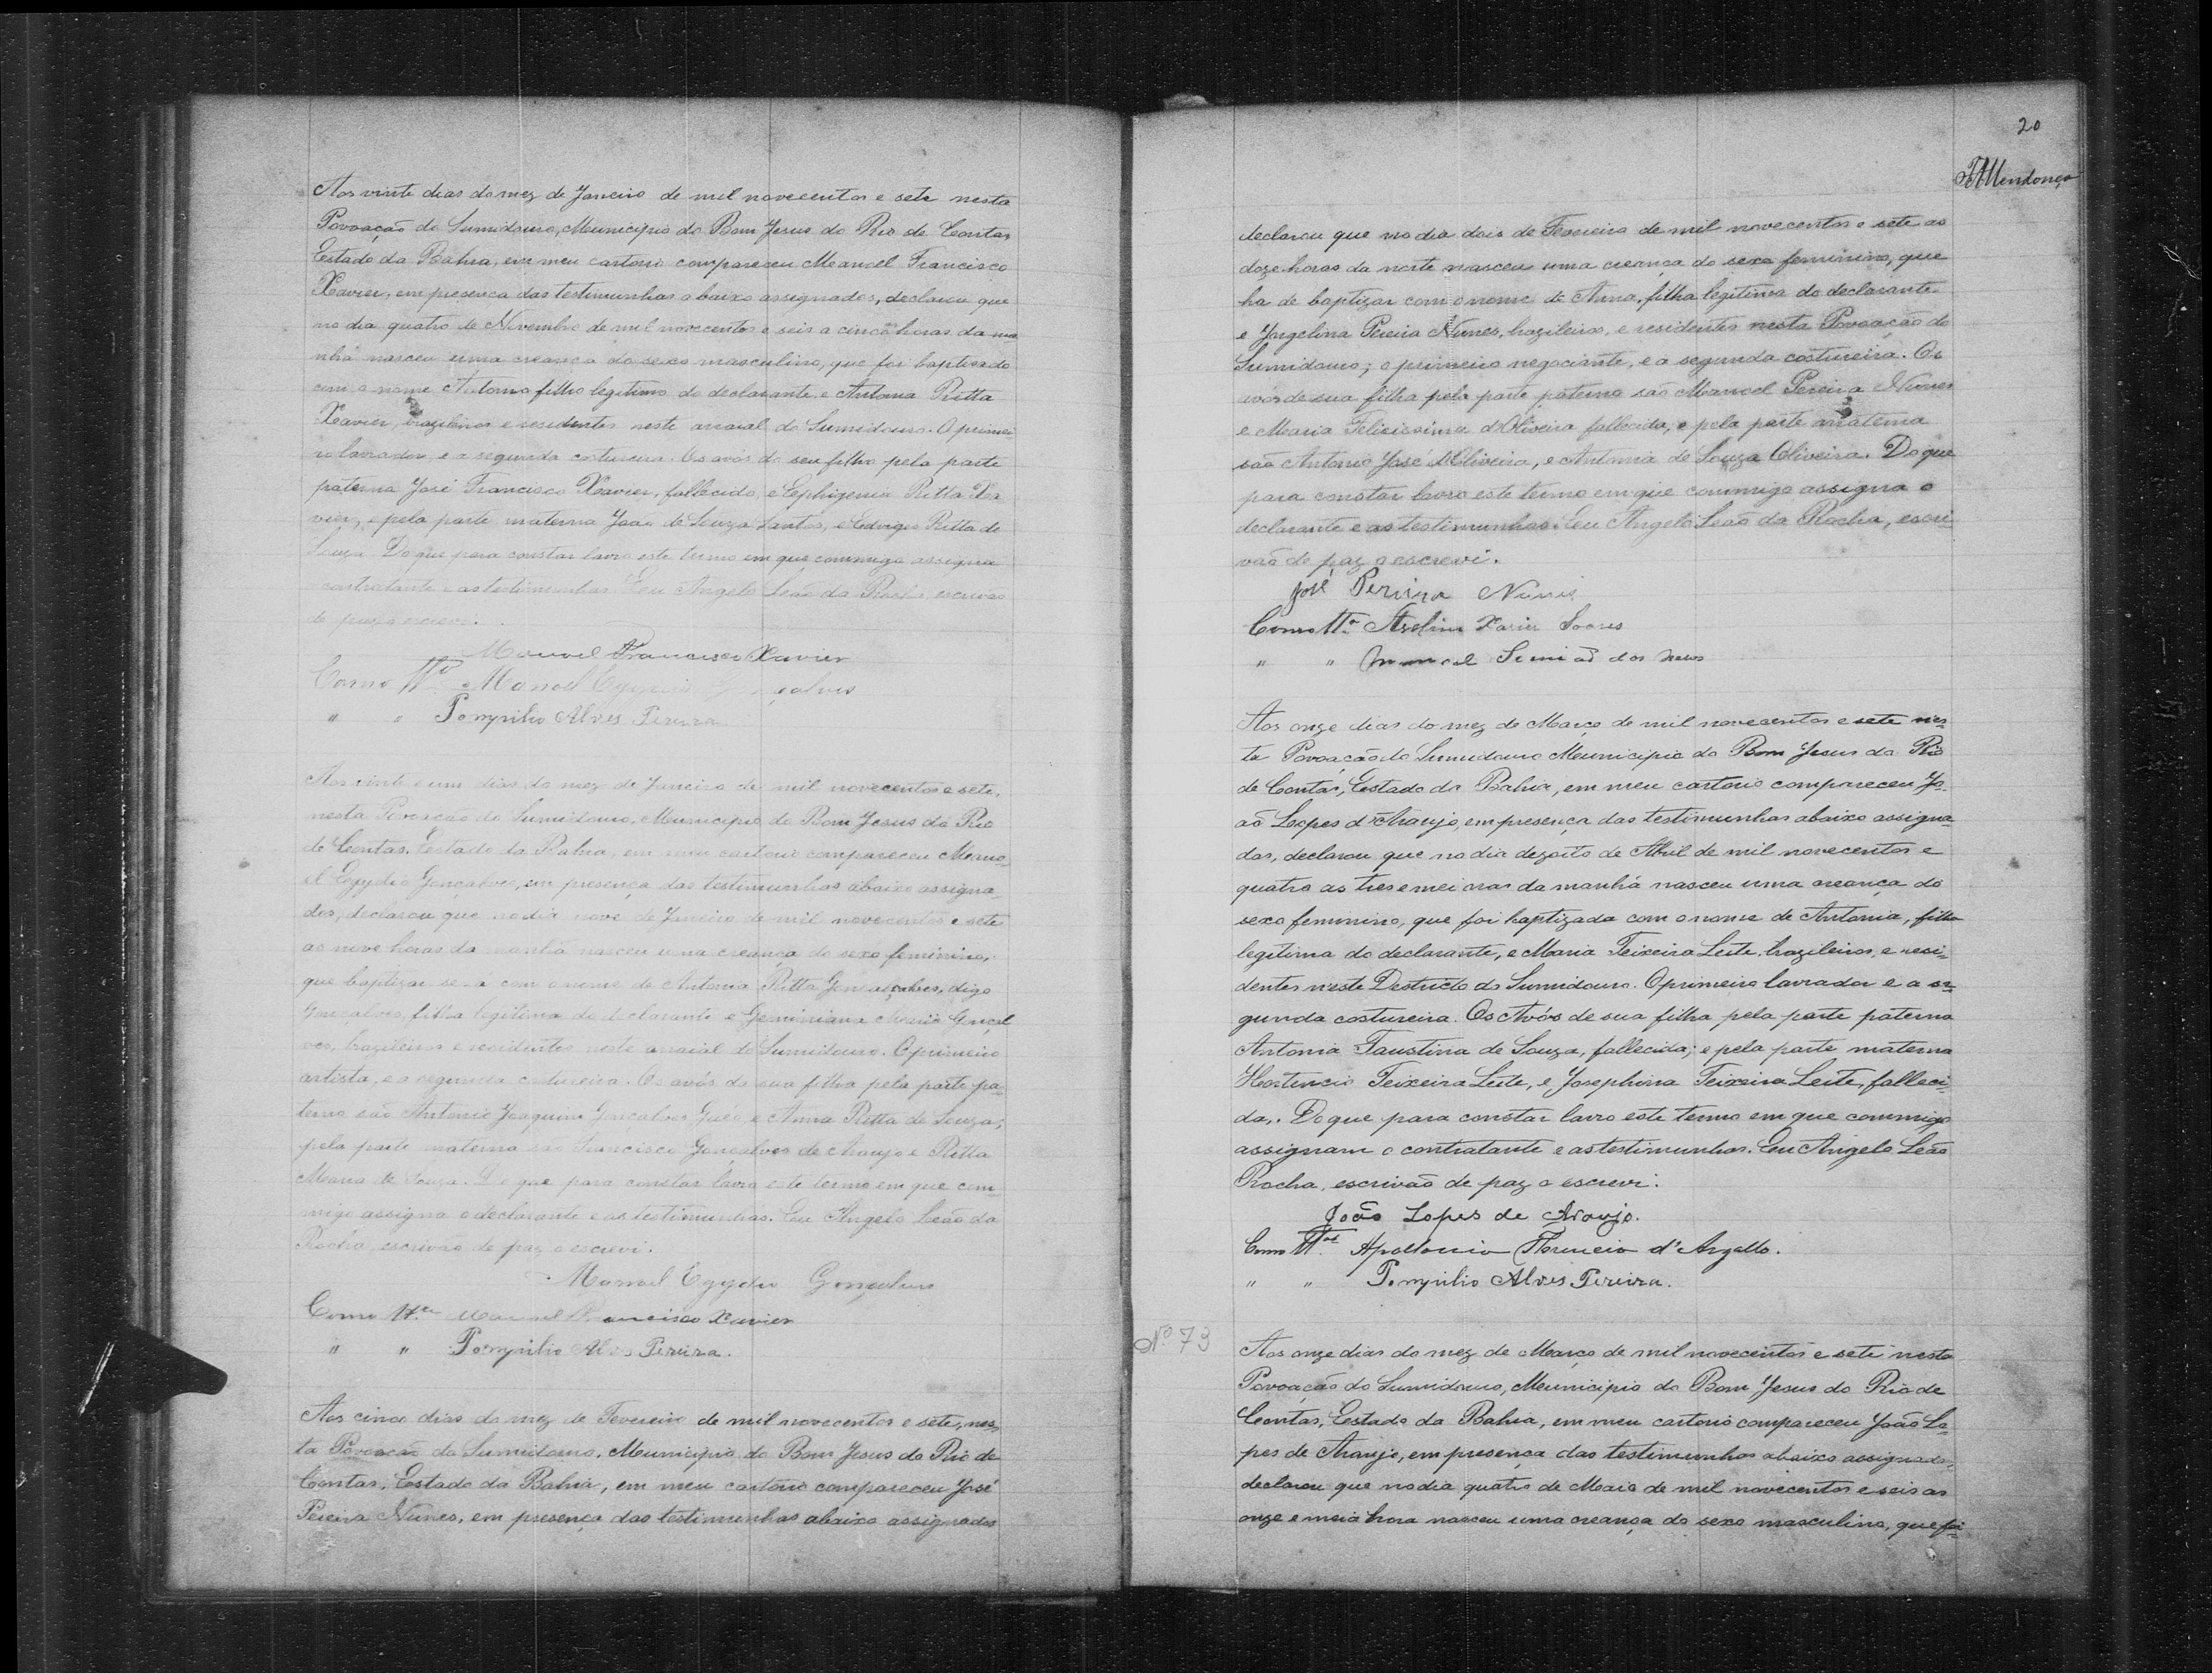 Aos vinte dias do mez de Janeiro de mil novecentos e sete nesta
Povoação do Sumidouro, Municipio do Bom Jesus do Rio de Contas
Estado da Bahia, em meu cartorio compareceu Manoel Francisco
Xavier, em presença das testimunhas abaixo assignados, declarou que
no dia quatro de Novembro de mil novecentos e seis a cinco horas da ma
nhã nasceu uma creança do sexo masculino, que foi baptisado
com o nome Antonio filho legitimo do declarante, e Antonia Ritta
Xavier, brazileiros e residentes neste arraial do Sumidouro. O primei
ro lavrador, e a segunda costureira. Os avós do seu filho pela parte
paterna José Francisco Xavier, fallecido, e Ephigenia Ritta Xa
vier, e pela parte materna João de Souza Santos, e Edviges Ritta de
Souza. Do que para constar lavro este termo em que commigo assigna
contratante e as testimunhas. Eu Angelo Leão da Rocha, escrivão
de paz o escrevi.
Manoel Francisco Xavier
Como Tta. Manoel Egydio Gonçalves
" " Pompilio Alves Pereira
Aos vinte e um dias do mez de Janeiro de mil novecentos e sete,
nesta Povoação do Sumidouro, Municipio do Bom Jesus do Rio
de Contas, Estado da Bahia, em meu cartorio compareceu Mano
el Egydio Gonçalves, em presença das testimunhas abaixo assigna
dos, declarou que no dia nove de Janeiro de mil novecentos e sete
as nove horas da manhã nasceu uma creança do sexo feminino,
que baptizar se-á com o nome de Antonia Ritta Gonçalves, digo
Gonçalves, filha legitima do declarante e Geminiana Maria Gonçal
ves, brazileiros e residentes neste arraial do Sumidouro. O primeiro
artista, e a segunda costureira. Os avós da sua filha pela parte pa-
terna são Antonio Joaquim Gonçalves e Anna Ritta de Souza;
pela parte materna são Francisco Gonçalves de Araujo e Ritta
Maria de Souza. Do que para constar lavro este termo em que com-
migo assigna o declarante e as testimunhas. Eu Angelo Leão da
Rocha, escrivão de paz o escrevi.
Manoel Egydio Gonçalves
Como Tta. Manoel Francisco Xavier
" " Pompilio Alves Pereira.
Aos cinco dias do mez de Fevereiro de mil novecentos e sete, nes-
ta Povoação do Sumidouro, Municipio do Bom Jesus do Rio de
Contas, Estado da Bahia, em meu cartorio compareceu José
Pereira Nunes, em presença das testimunhas abaixo assignados
20
Mendonça
declarou que no dia dois de Fevereiro de mil novecentos e sete as
doze horas da noite nasceu uma creança do sexo feminino, que
ha de baptizar com o nome de Anna, filha legitima do declarante
e Jorgelina Pereira Nunes, brazileiros, e residentes nesta Povoação do
Sumidouro; o primeiro negociante, e a segunda costureira. Os
avós de sua filha pela parte paterna são Manoel Pereira Nunes
e Maria Felicissima d'Oliveira fallecida, e pela parte materna
são Antonio José d'Oliveira, e Antonia de Souza Oliveira. Do que
para constar lavro este termo em que commigo assigna o
declarante e as testimunhas. Eu Angelo Leão da Rocha, escri-
vão de paz o escrevi.
José Pereira Nunes
Como Tta. Avelino Xavier Soares
" " Manoel Simião dos
Aos onze dias do mez de Março de mil novecentos e sete nes-
ta Povoação do Sumidouro Municipio do Bom Jesus do Rio
de Contas, Estado da Bahia, em meu cartorio compareceu Jo-
ão Lopes d'Araujo, em presença das testimunhas abaixo assigna-
das, declarou que no dia dezoito de Abril de mil novecentos e
quatro as tres e mei oras da manhã nasceu uma creança do
sexo feminino, que foi baptizada com o nome de Antonia, filha
legitima do declarante, e Maria Teixeira Leite, brazileiros, e resi-
dentes neste Destricto do Sumidouro. O primeiro lavrador e a se-
gunda costureira. Os Avós de sua filha pela parte paterna
Antonia Faustina de Souza, fallecida; e pela parte materna
Hortencio Teixeira Leite, e Josephina Teixeira Leite, falleci-
da,. Do que para constar lavro este termo em que commigo
assignam o contratante e as testimunhas. Eu Angelo Leão
Rocha, escrivão de paz o escrevi.
João Lopes de Araujo.
Como Ttas. Apollonio Florencio d'Argollo.
" " Pompilio Alves Pereira.
Nº 73
Aos onze dias do mez de Março de mil novecentos e sete nesta
Povoação do Sumidouro, Municipio do Bom Jesus do Rio de
Contas, Estado da Bahia, em meu cartorio compareceu João Lo-
pes de Araujo, em presença das testimunhas abaixo assignados,
declarou que no dia quatro de Maio de mil novecentos e seis as
onze e meia hora nasceu uma creança do sexo masculino, que foi